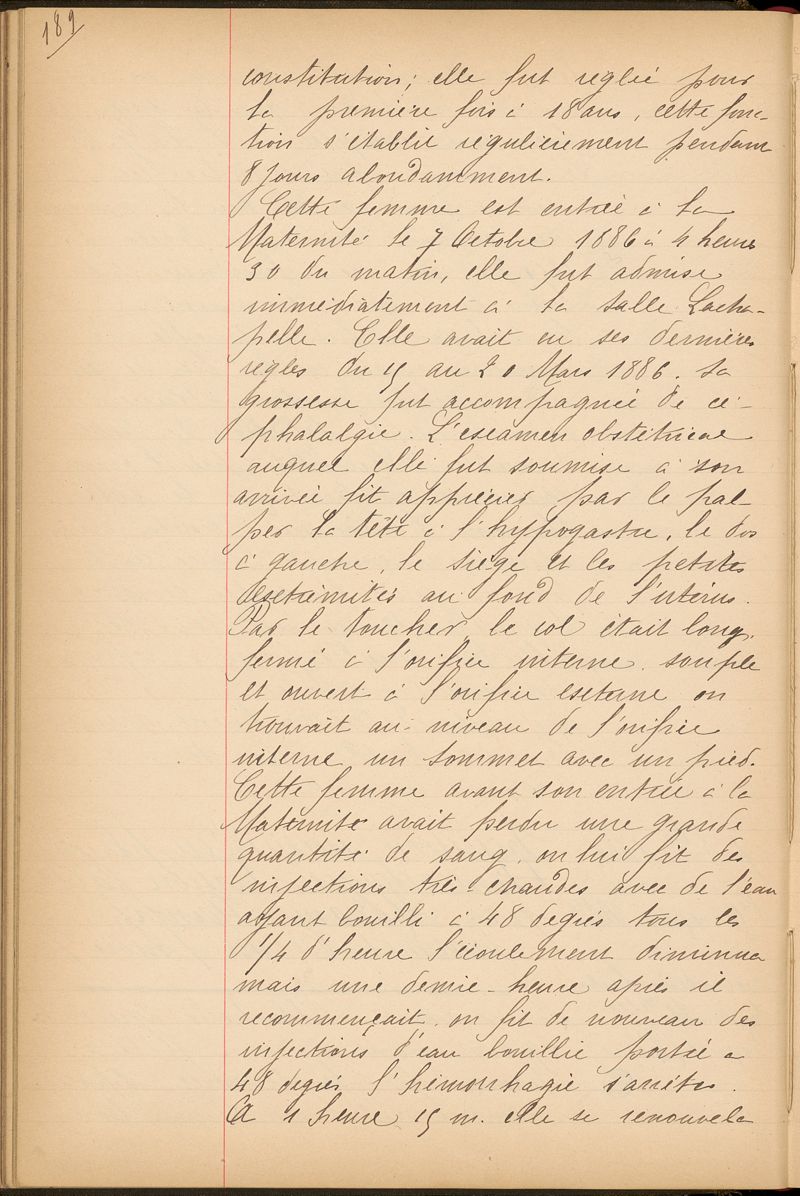 189
constitution; elle fut reglée pour
la première fois à 18 ans, cette fonc-
tion s'établit régulièrement pendant
8 jours abondamment.
Cette femme est entrée à la
Maternité le 7 Octobre 1886 à 4 heures
30 du matin, elle fut admise
immédiatement à la salle Lacha-
pelle. Elle avait eu ses dernières
règles du 15 au 20 Mars 1886. Sa
grossesse fut accompagnée de cé-
phalalgie. L'examen obstétrical
auquel elle fut soumise à son
arrivée fit apprécier par le pal-
per la tête à l'hypogastre, le dos
à gauche, le siège et les petites
extrémités au fond de l'utérus.
Par le toucher, le col était long,
fermé à l'orifice interne, souple
et ouvert à l'orifice externe on
trouvait au niveau de l'orifice
interne un sommet avec un pied.
Cette femme avant son entrée à la
Maternité avait perdu une grande
quantité de sang, on lui fit des
injections très-chaudes avec de l'eau
ayant bouilli à 48 degrés tous les
1/4 d'heure l'écoulement diminua
mais une demie-heure après il
recommençait, on fit de nouveau des
injections d'eau bouillie portée à
48 degrés l'hémorrhagie s'arrêta.
A 1 heure 15 m. elle se renouvela